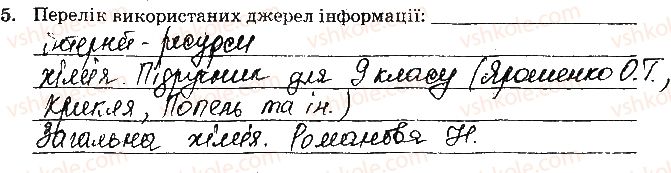 5. Перелік використаних джерел інформації:
інтернет - ресурси
хімія. Підручник для 9 класу (Ярошенко О.Т.,
Крикля, Попель та ін.)
Загальна хімія. Романова Н.